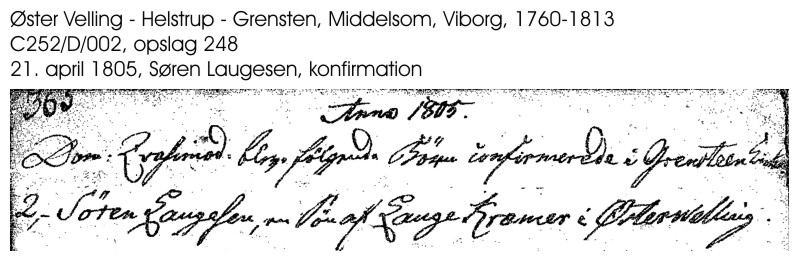 Øster Velling - Helstrup - Grensten, Middelsom, Viborg, 1760-1813
C252/D/002, opslag 248
21. april 1805, Søren Laugesen, konfirmation
365
Anno 1805.
Dom: Qvasimod: blev følgende Börn confirmerede i Grensteen Kirke
2,- Sören Laugesen, en Sön af Lauge Kræmer i Østerwelling.